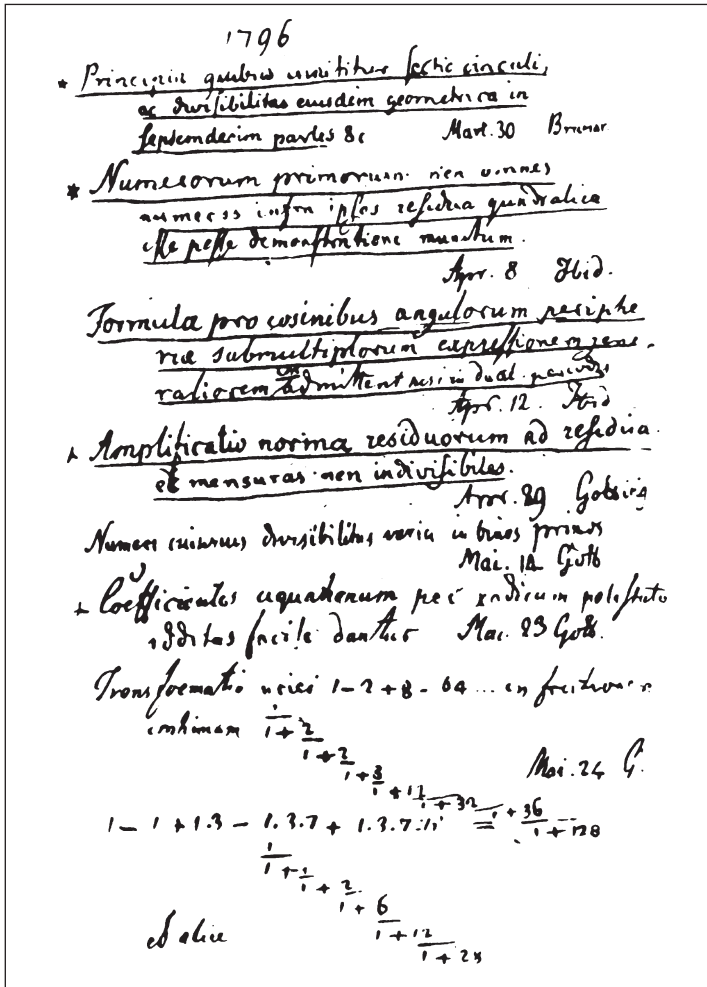 1796
* Principia quibus innititur sectio circuli,
ac divisibilitas eiusdem geometrica in
septemdecim partes &c Mart. 30 Brunsv
* Numerorum primorum non omnes
numeros infra ipsos residua quadratica
esse posse demonstratione munitum.
Apr. 8 Ibid.
Formulae pro cosinibus angulorum periphe
riae submultiplorum expressionem gene-
raliorem non admittent nisi in duab. periodis
Apr. 12. Ibid
+ Amplificatio normae residuorum ad residua
et mensuras non indivisibiles.
Apr. 29 Gotting
Numeri cuiusvis divisibilitas varia in binos primos
Mai. 14 Gott
+ Coefficientes aequationum per radicum potestates
additas facile dantur Mai. 23 Gott.
Transformatio seriei 1 - 2 + 8 - 64 ... in fractionem
continuam 1/1 + 2/1 + 2/1 + 8/1 + 12/1 + 32/1 + 56/1 + 128
Mai. 24 G.
1 - 1 + 1.3 - 1.3.7 + 1.3.7.15 =
1/1 + 1/1 + 2/1 + 6/1 + 12/1 + 28
et aliae